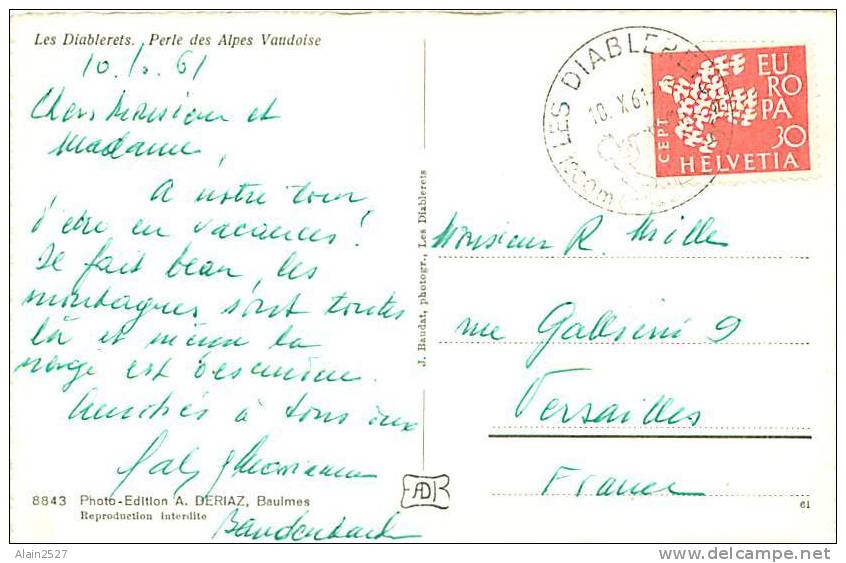 Les Diablerets. Perle des Alpes Vaudoise
10. X. 61
Chers Monsieur et
Madame,
A notre tour
d'être en vacances!
Il fait beau, les
montagnes sont toutes
là et même la
neige est descendue.
à tous deux
Baudenbach
8843 Photo-Edition A. DERIAZ, Baulmes
Reproduction interdite
J. Baudat, photogr., Les Diablerets
ADB
LES DIABLERETS
10. X. 61
CEPT
EUROPA
30
HELVETIA
Monsieur R. Mille
rue Gallieni 9
Versailles
France
61
Alain2527
delcampe.net